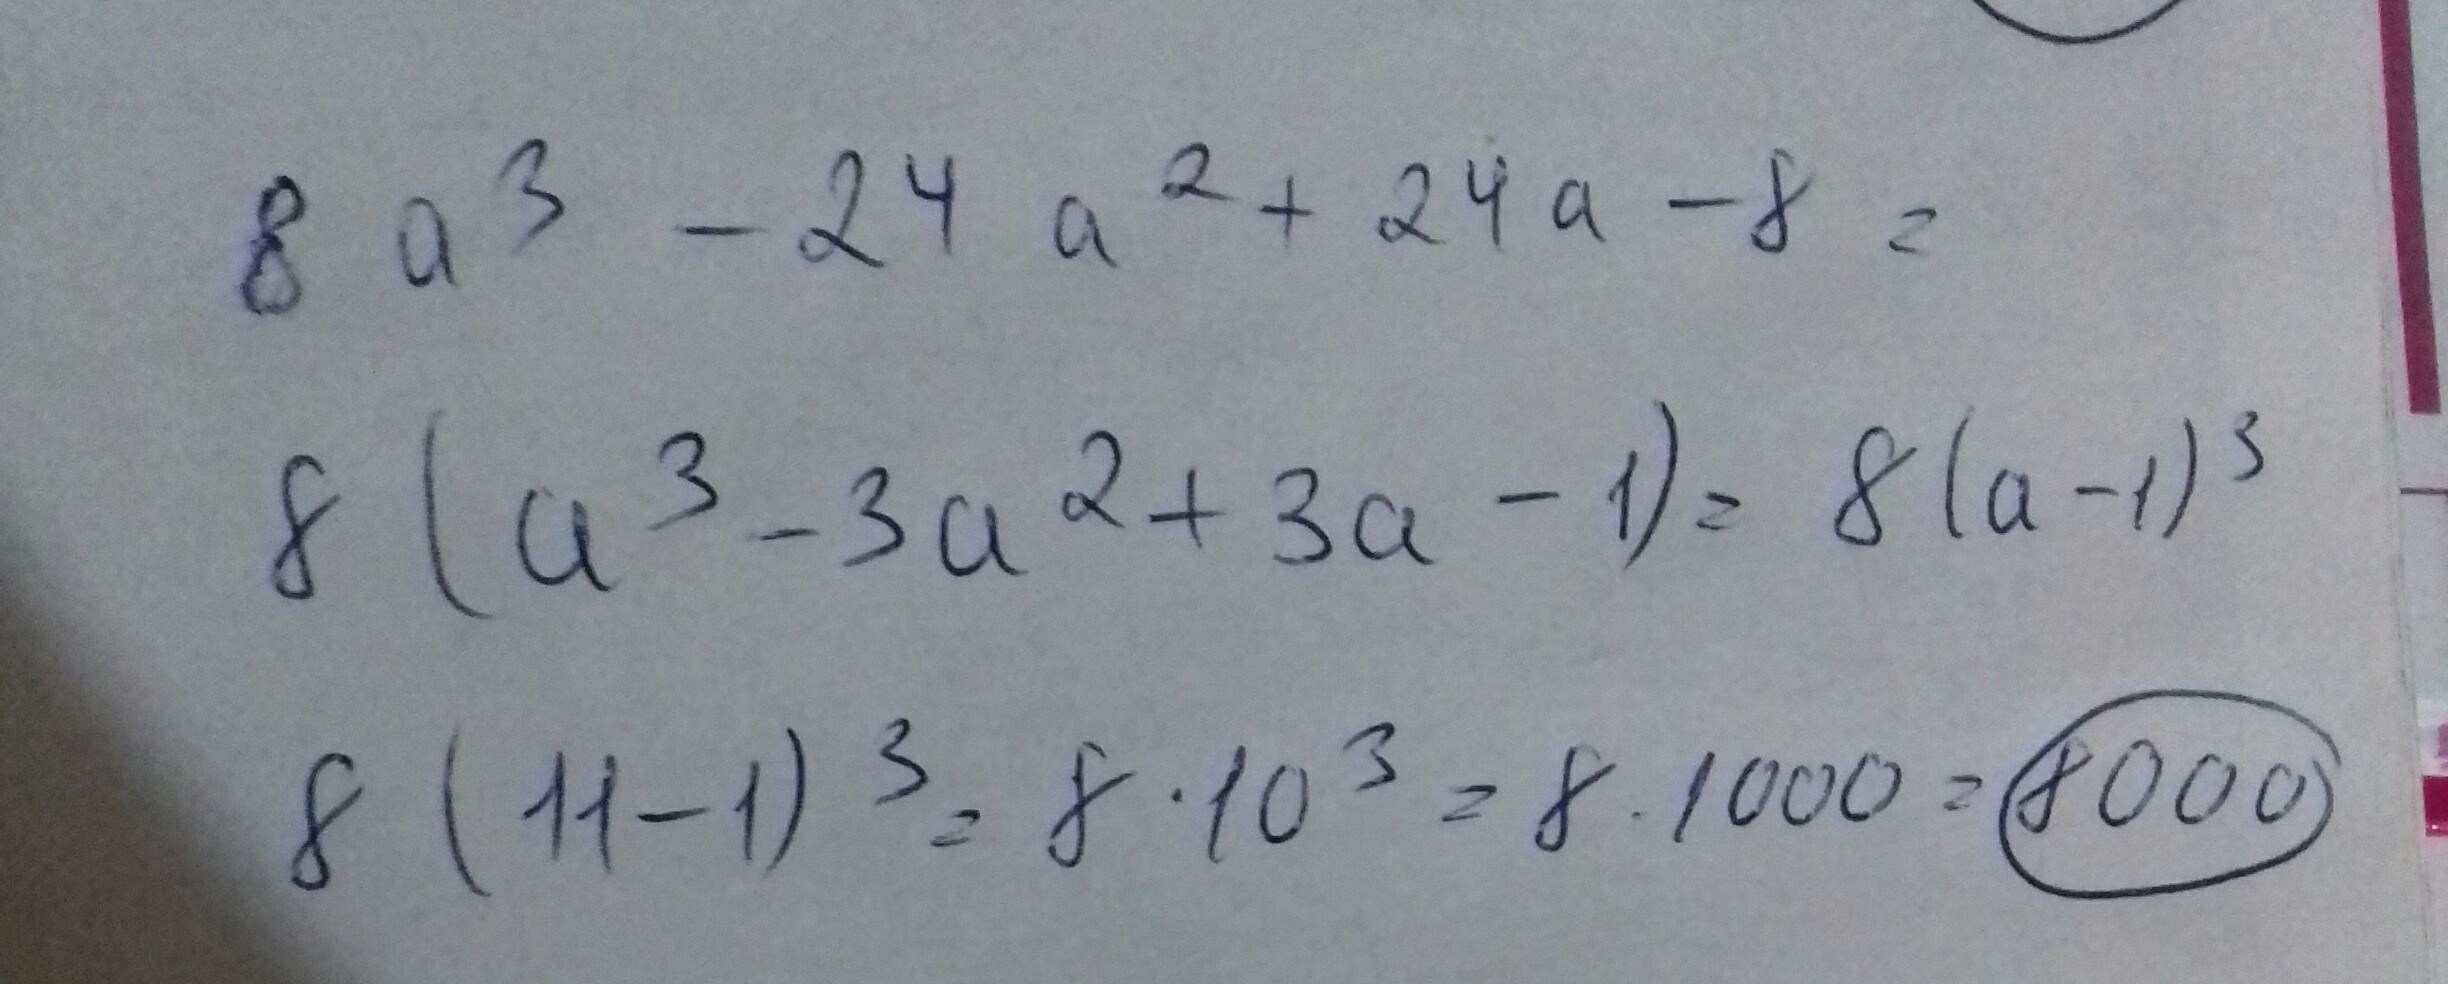 8 a³ - 24 a² + 24 a - 8 =
8 ( a³ - 3a² + 3a - 1) = 8 (a - 1)³
8 ( 11 - 1)³ = 8 · 10³ = 8 . 1000 = 8000